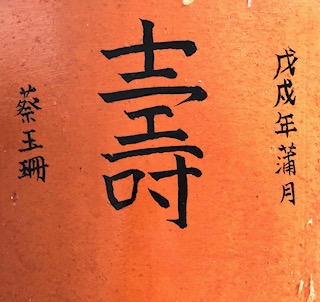 戊戌年蒲月
壽
蔡玉珊